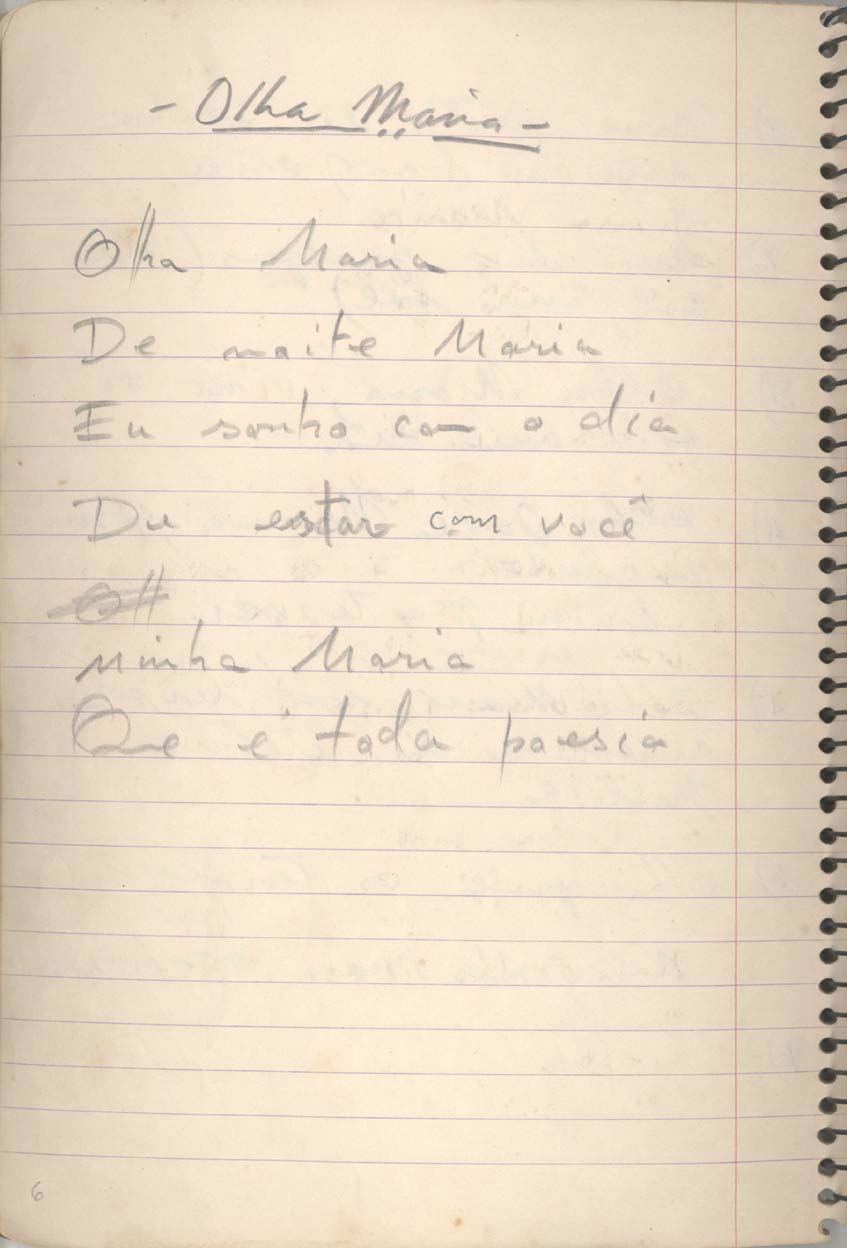 - Olha Maria -
Olha Maria
De noite Maria
Eu sonho com o dia
De estar com você
Olh
minha Maria
Que é toda poesia
6